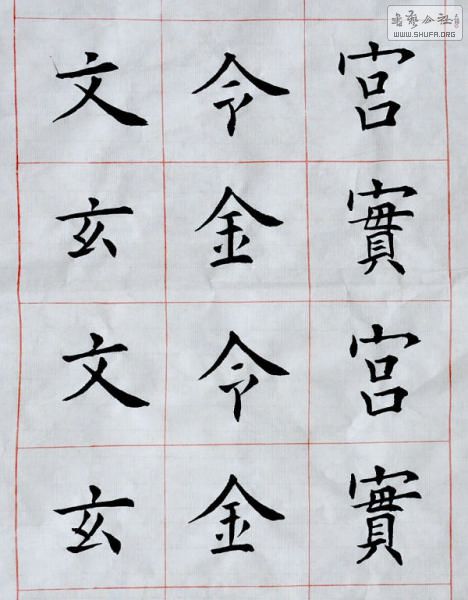 宫實宫實
令金令金
文玄文玄
書藝公社
WWW.SHUFA.ORG